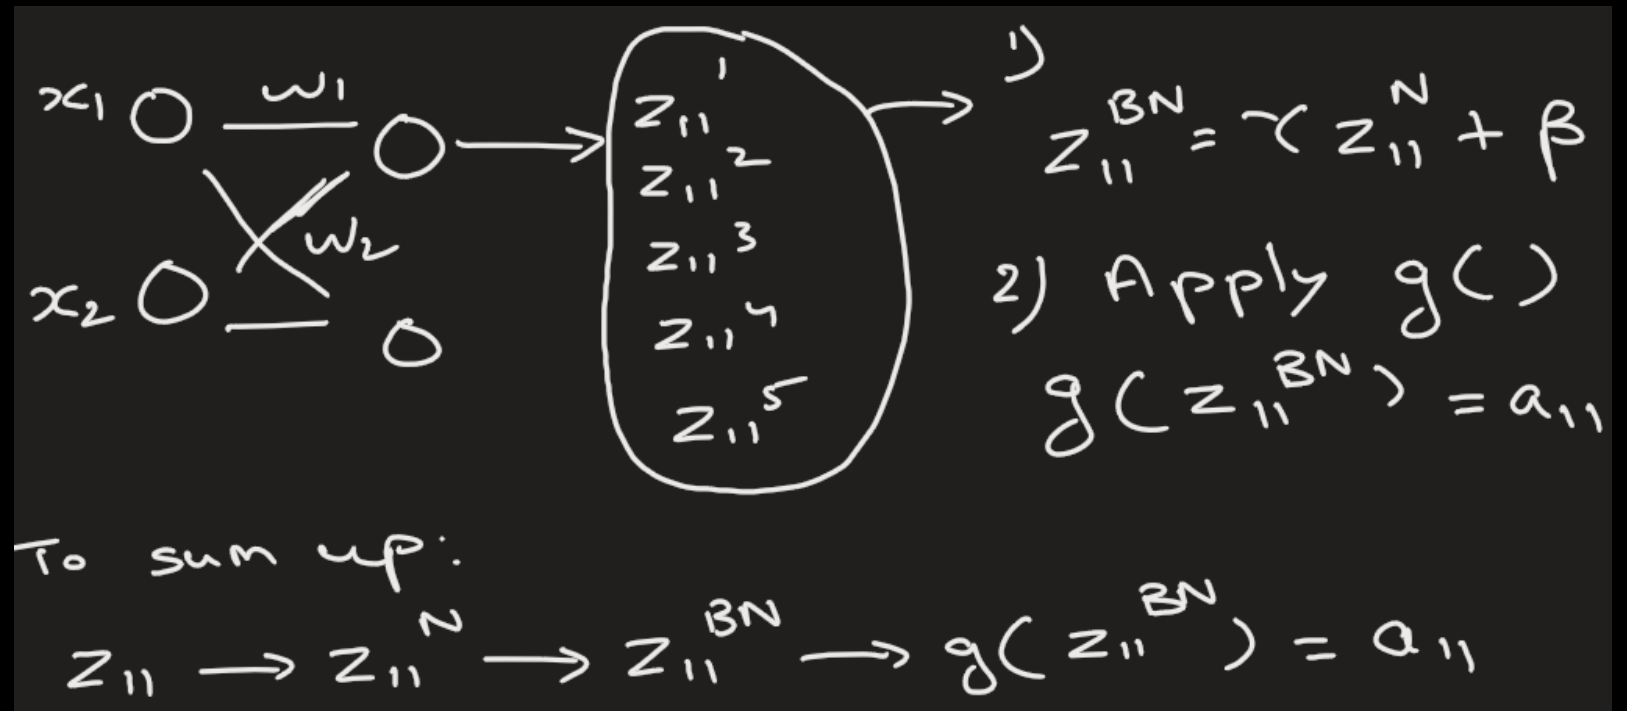 x₁ w₁
w₂
x₂
z₁₁¹
z₁₁²
z₁₁³
z₁₁⁴
z₁₁⁵
1)
z₁₁ᴮᴺ = γ z₁₁ᴺ + β
2) Apply g()
g(z₁₁ᴮᴺ) = a₁₁
To sum up:
z₁₁ → z₁₁ᴺ → z₁₁ᴮᴺ → g(z₁₁ᴮᴺ) = a₁₁